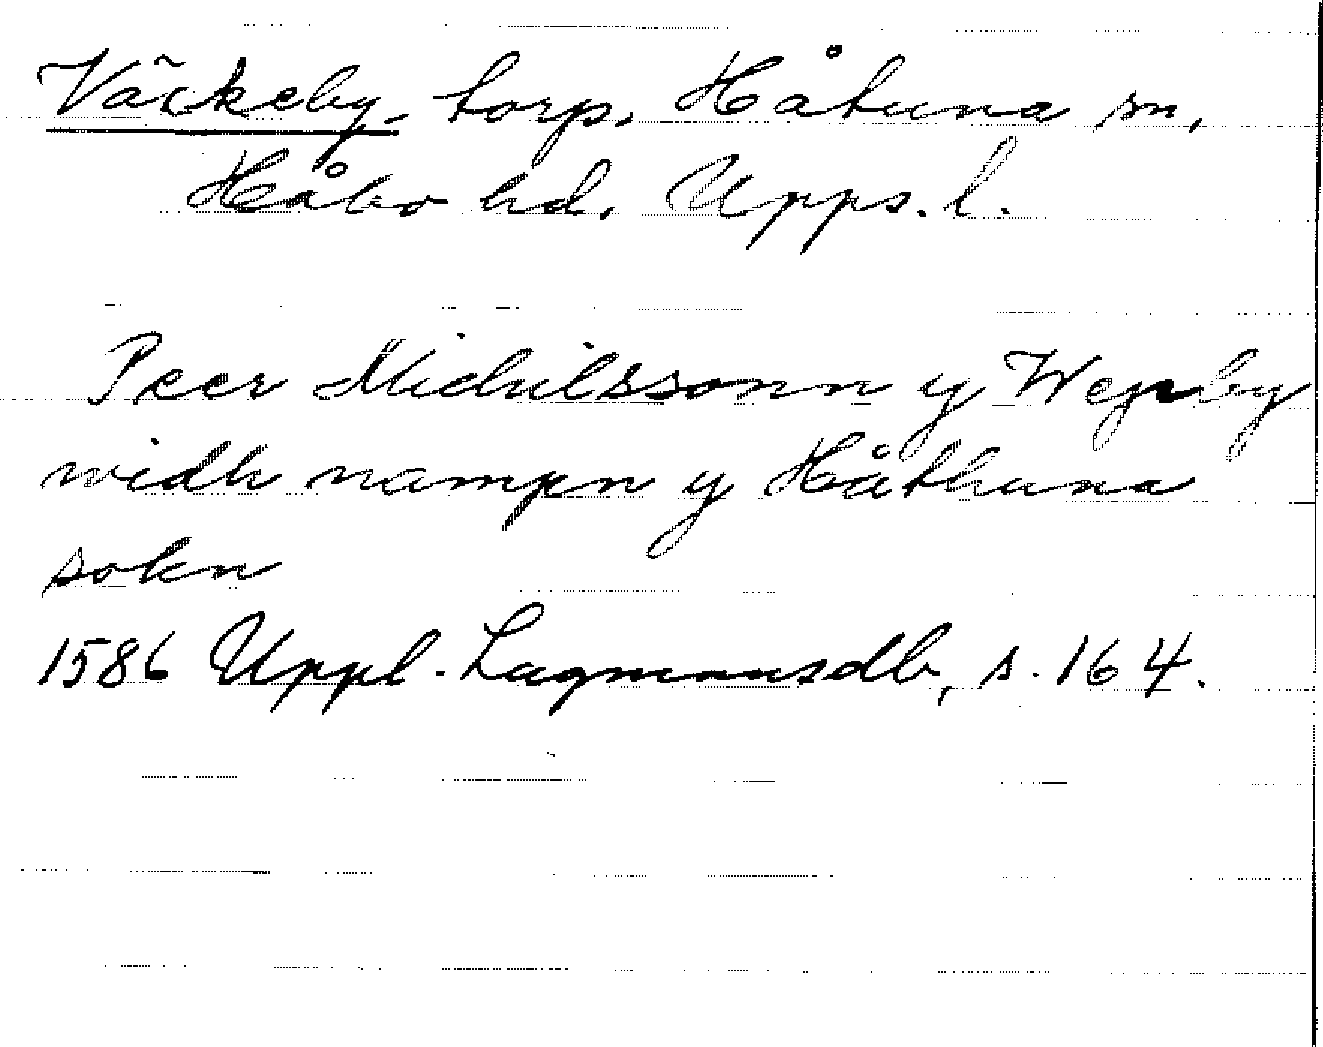 Väckeby, torp. Håtuna sn,
Håbo hd. Upps. l.
Peer Michilssonn y
widh nampn y Håthuna
sokn
1586 Uppl. Lagmansdb, s. 164.